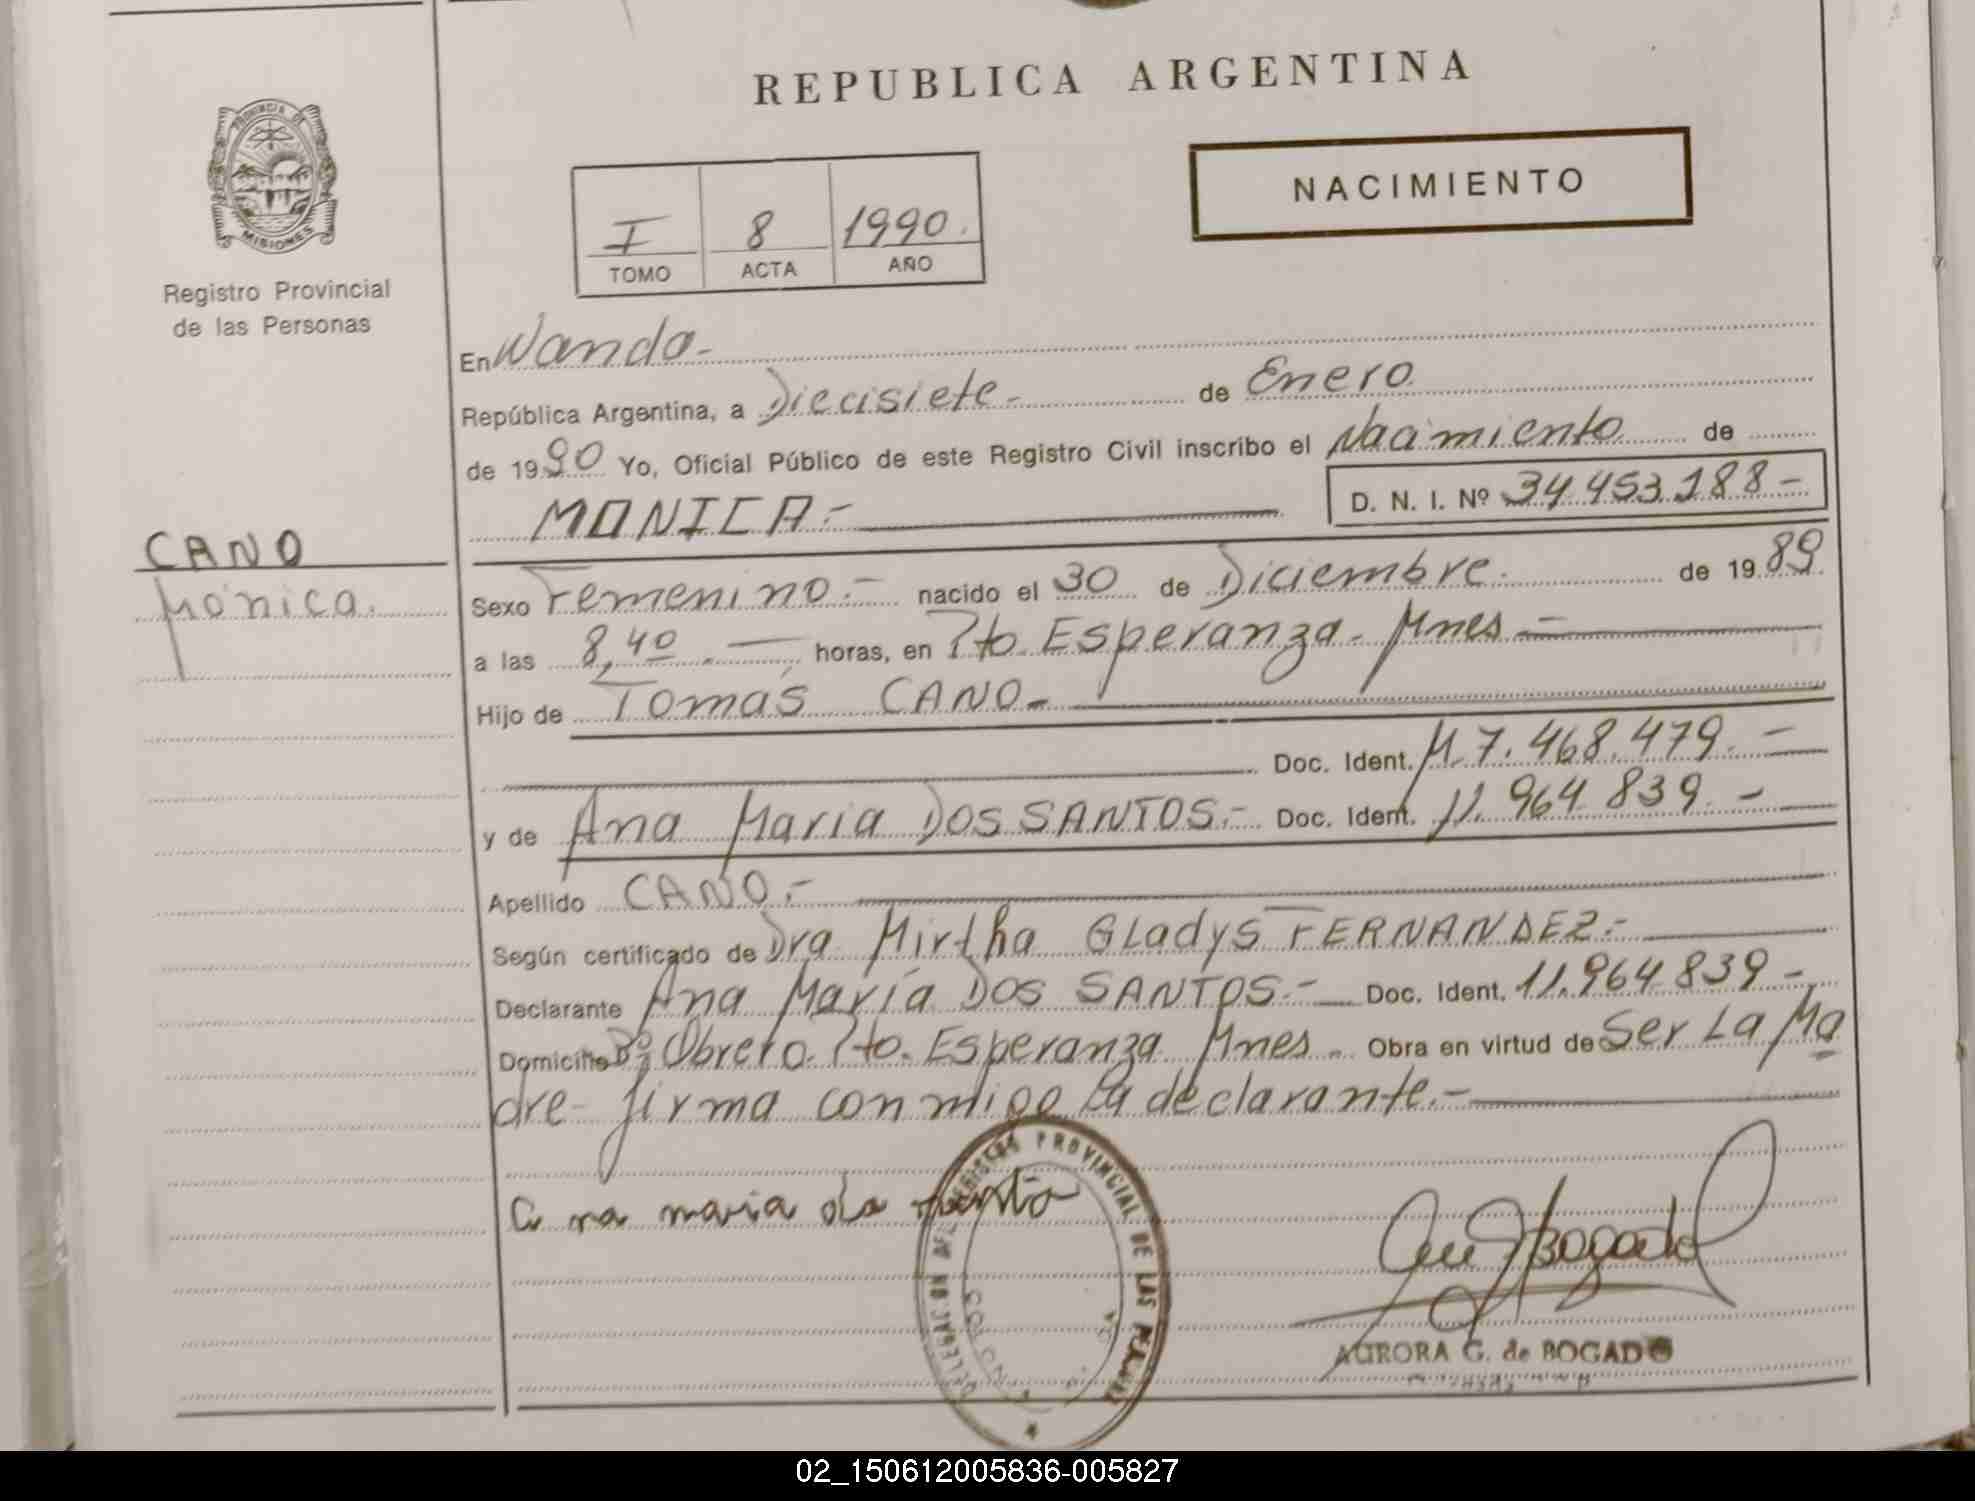 REPUBLICA ARGENTINA
PROVINCIA DE
MISIONES
Registro Provincial
de las Personas
NACIMIENTO
I 8 1990.
TOMO ACTA AÑO
En Wanda-
República Argentina, a Diecisiete- de Enero
de 1990 Yo, Oficial Público de este Registro Civil inscribo el Nacimiento de
MONICA.- D. N. I. Nº 34.453.188-
CANO
Mónica.
Sexo Femenino.- nacido el 30 de Diciembre. de 1989
a las 8,40.- horas, en Pto. Esperanza. Mnes-
Hijo de Tomás CANO-
Doc. Ident. M.7.468.479.-
y de Ana Maria DOS SANTOS.- Doc. Ident. 11.964.839.-
Apellido CANO.-
Según certificado de Dra Mirtha GLadys FERNANDEZ.-
Declarante Ana María DOS SANTOS.- Doc. Ident. 11.964.839-
Domicilio Bº Obrero. Pto. Esperanza Mnes- Obra en virtud de Ser La Ma
dre- firma conmigo La declarante.-
Ana maria
REGISTRO PROVINCIAL DE LAS
DELEGACION
Bogado
AURORA G. de BOGADO
02_150612005836-005827